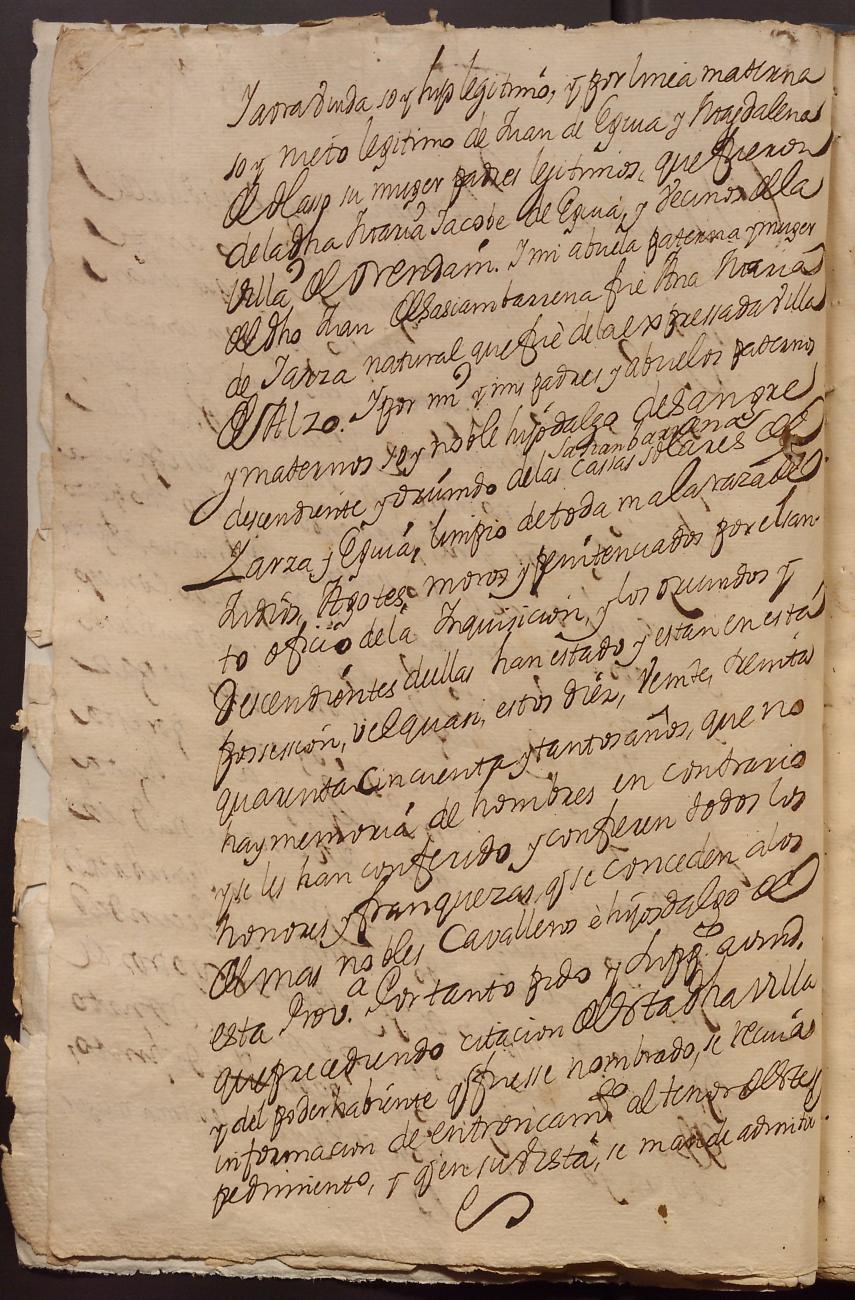 soy hijo legitimó, y por linea materna
soy nieto legitimo de Juan de Eguia y Magdalena
de Olaso su muger padres legitimos, que fueron
dela dha Maria Jacobe de Eguia, y Vecinos dela
Villa de Orendain. I mi abuela paterna y muger
del dho Juan de Sasiambarrena fue Ana Maria
de Zarza natural que fué dela expressada Villa
de Alzo. I por mi y mis padres y abuelos paternos
y maternos soy noble hijodalgo de sangre
Sasiambarrena
descendiente y oriundo delas cassas solares de
Zarza y Eguia, limpio de toda mala raza de
Judios, Agotes, moros y penitenciados por el san-
to oficio dela Inquisicion, y los oriundos y
Descendientes dellas han estado y estan en está
possession, vel quasi, estos diéz, Veinte, treinta
quarenta cincuenta y tantos años, que no
hay memoria de hombres en contrario
y se les han conferido y confieren todos los
honores y franquezas, q se conceden alos
de mas nobles Cavalleros è hijosdalgo de
esta Prov.a Por tanto pido y Suppco a vmd.
que precediendo citacion de esta dha villa
y del poderhabiente q fuesse nombrado, se reciva
informacion de entroncamto al tenor de este
pedimiento, y q en su vista, se mande admitir